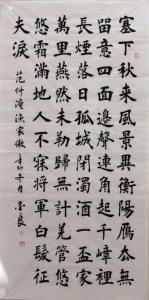 塞下秋來風景異衡陽鴈去無
留意四面邊聲連角起千嶂裡
長煙落日孤城閉濁酒一盃家
萬里燕然未勒歸無計羌管悠
悠霜滿地人不寐將軍白髮征
夫淚
范仲淹漁家傲 辛卯冬月 良